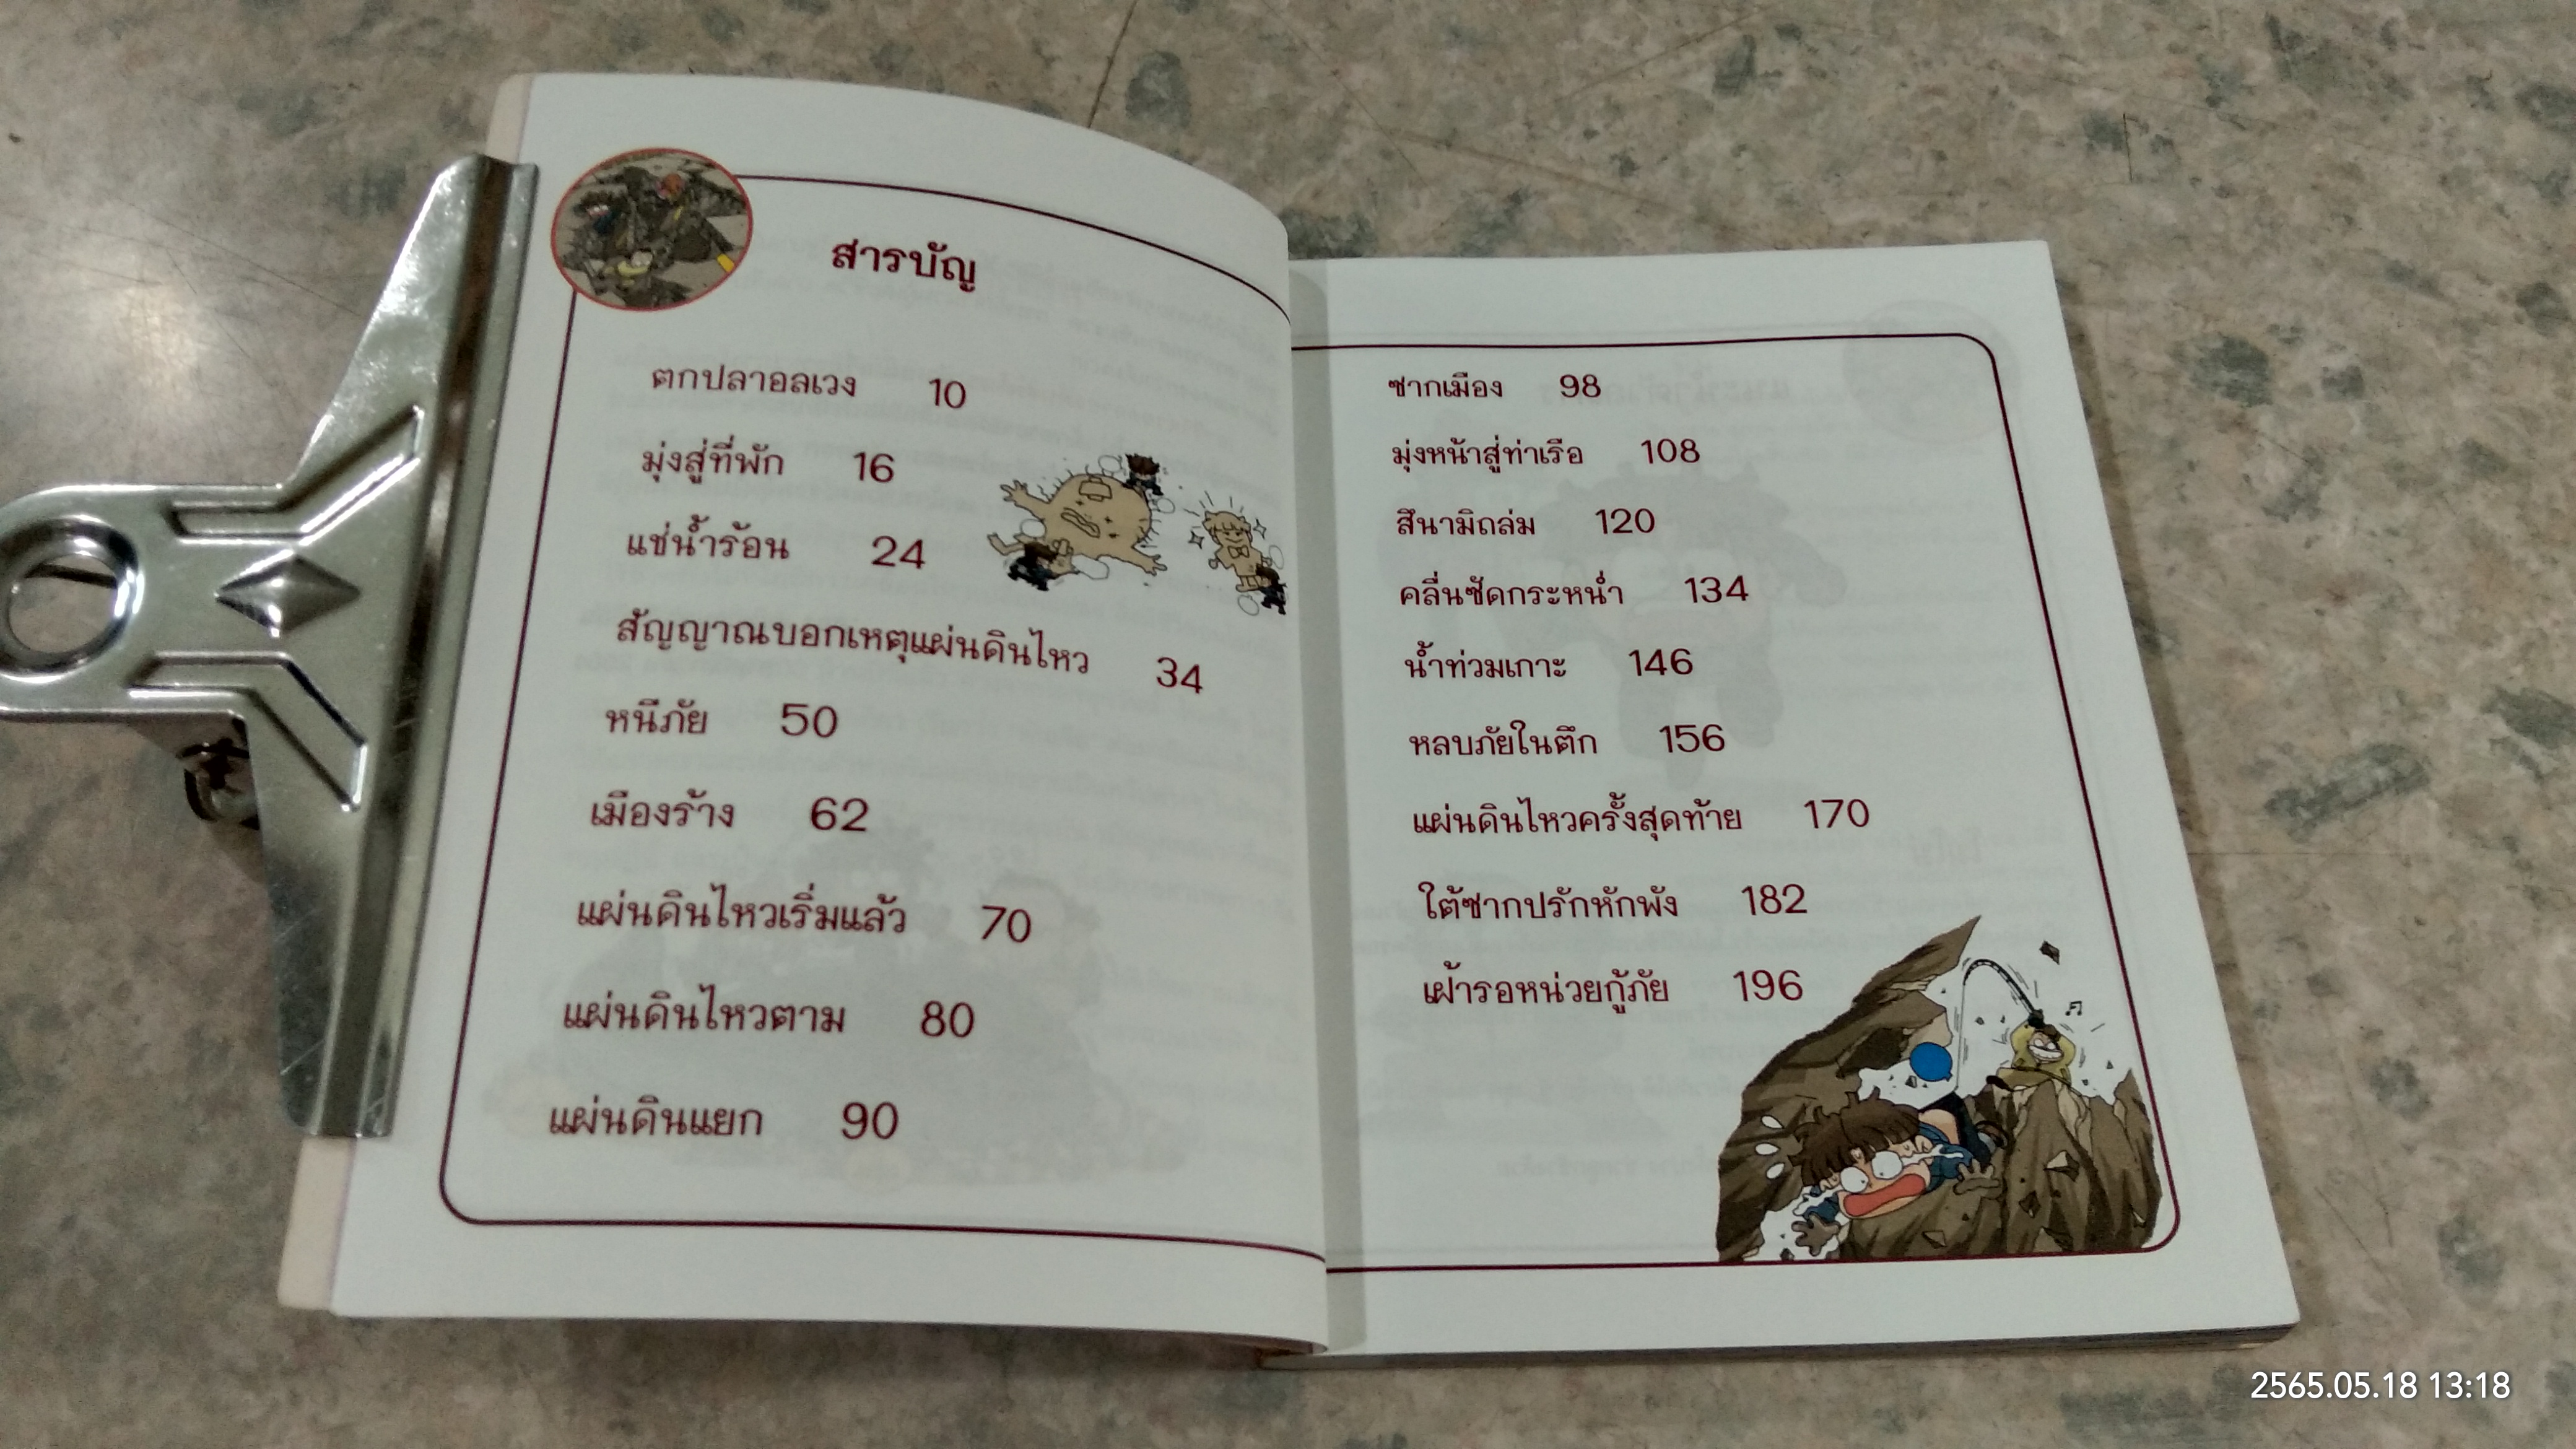 สารบัญ
ตกปลาอลเวง 10
มุ่งสู่ที่พัก 16
แช่น้ำร้อน 24
สัญญาณบอกเหตุแผ่นดินไหว 34
หนีภัย 50
เมืองร้าง 62
แผ่นดินไหวเริ่มแล้ว 70
แผ่นดินไหวตาม 80
แผ่นดินแยก 90
ซากเมือง 98
มุ่งหน้าสู่ท่าเรือ 108
สึนามิถล่ม 120
คลื่นซัดกระหน่ำ 134
น้ำท่วมเกาะ 146
หลบภัยในตึก 156
แผ่นดินไหวครั้งสุดท้าย 170
ใต้ซากปรักหักพัง 182
เฝ้ารอหน่วยกู้ภัย 196
2565.05.18 13:18